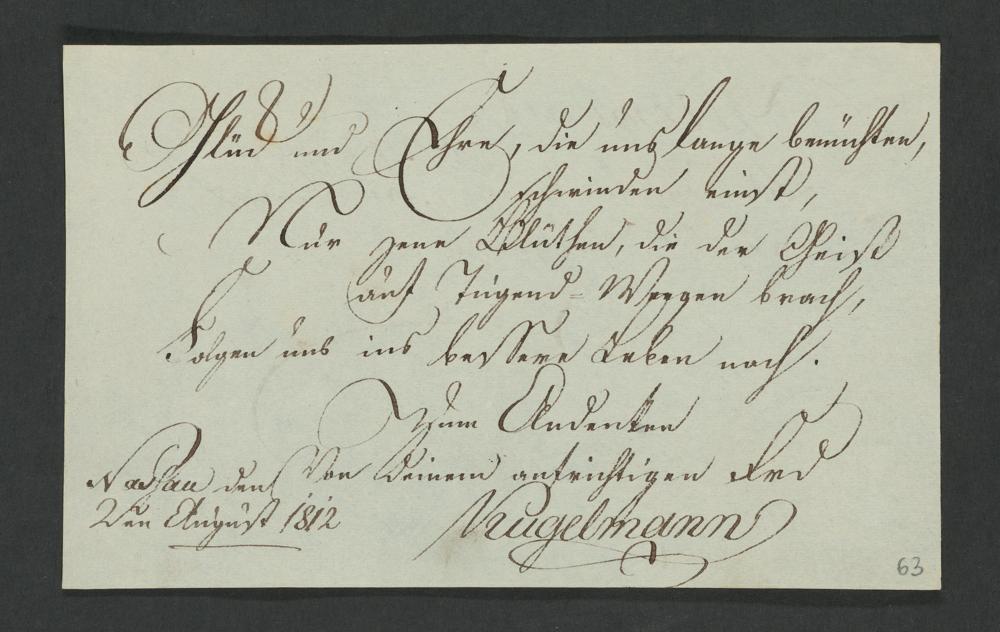 Glück und Ehre, die uns lange beküchten,
schwinden einst,
Nur jene Blüthen, die der Geist
auf Tugend=Weegen brach,
Folgen uns ins bessere Leben nach.
Zum Andenken
Von Deinem aufrichtigen Frd
Nassau den
2ten August 1812
Kugelmann
63